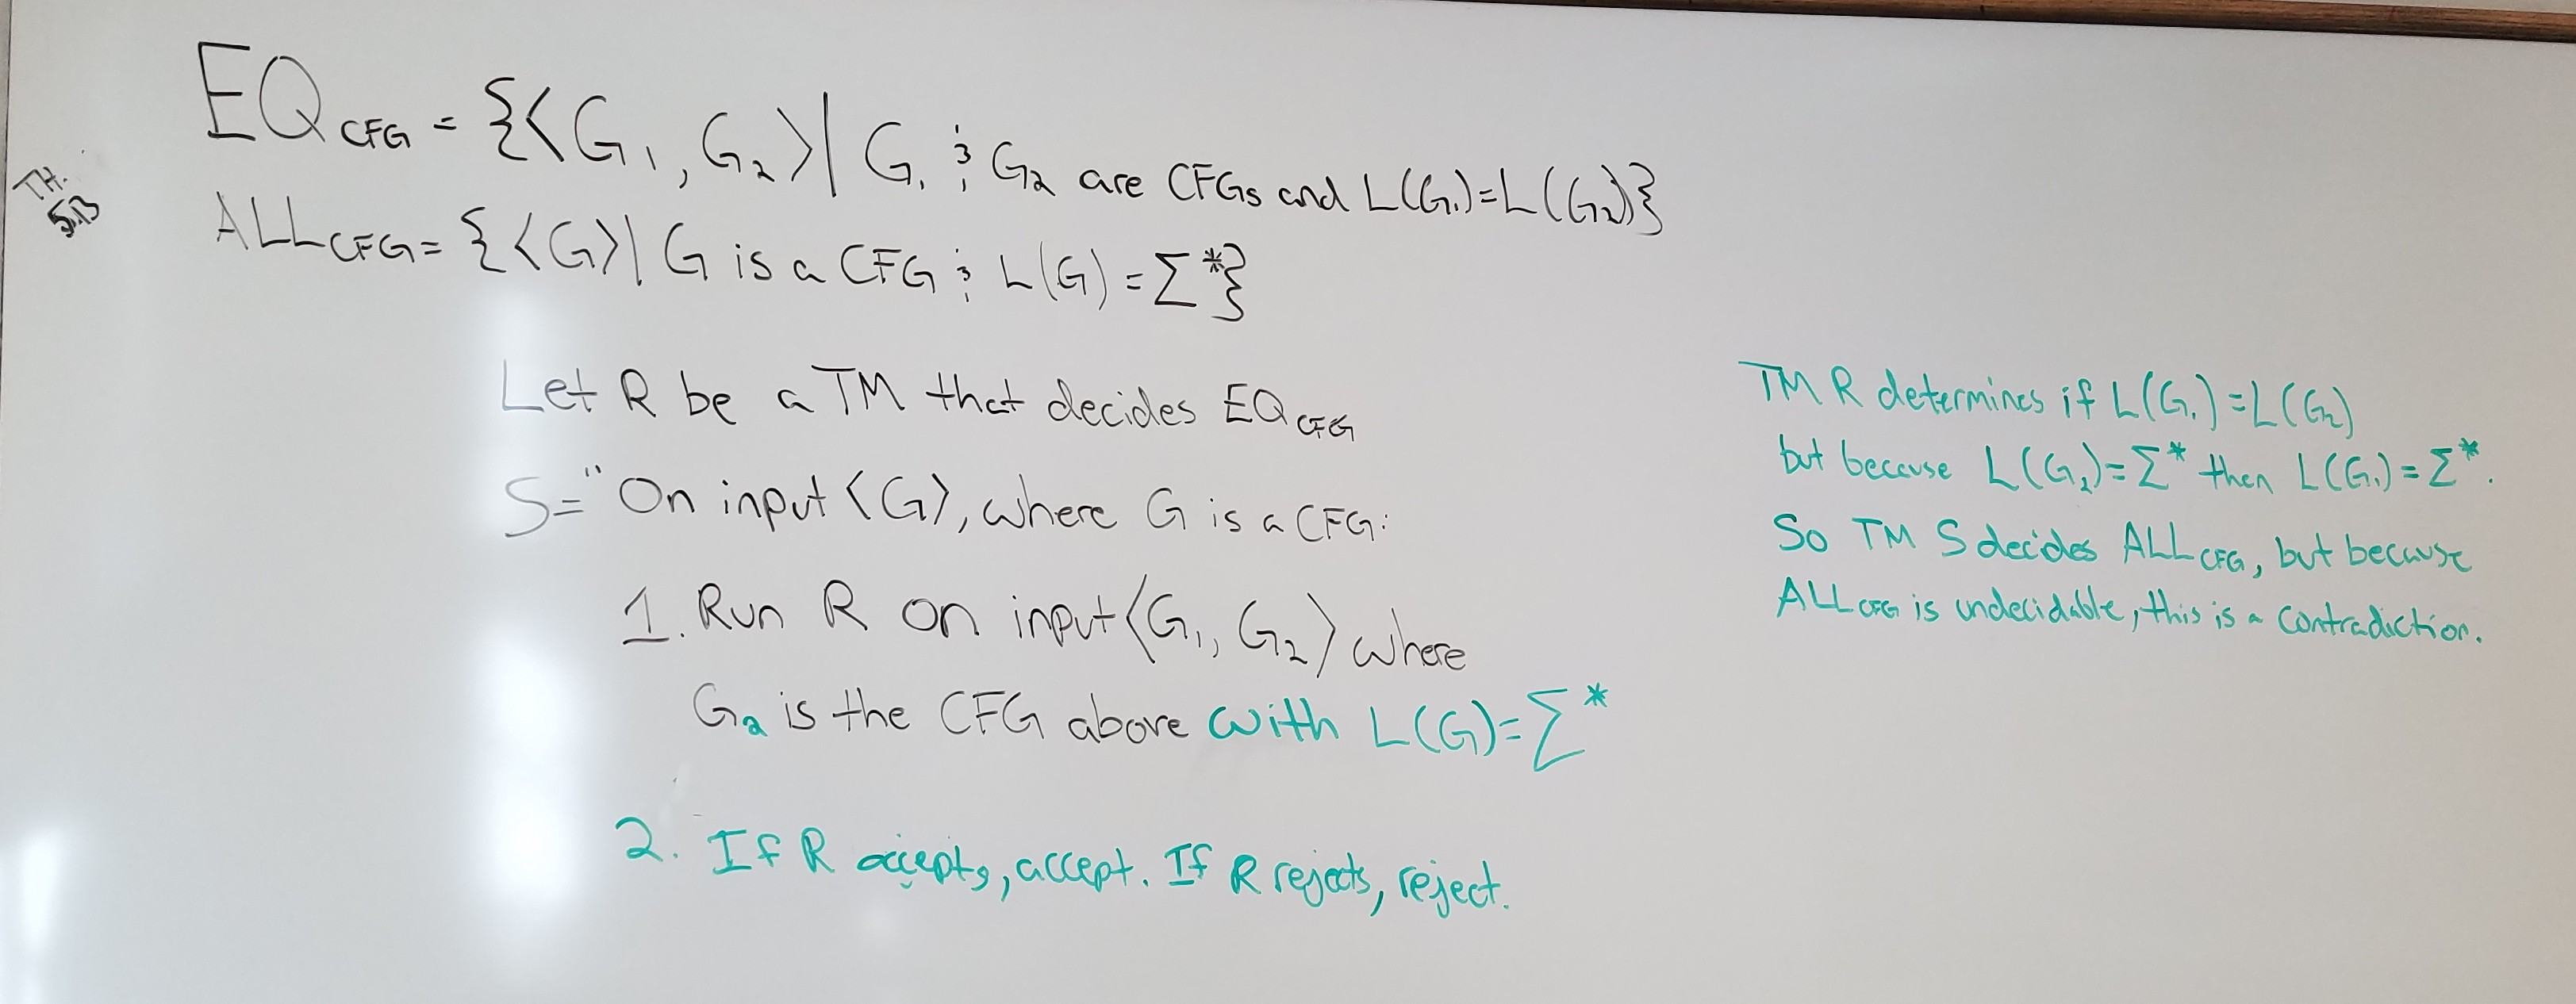 EQ_CFG = {⟨G₁, G₂⟩ | G₁ & G₂ are CFGs and L(G₁)=L(G₂)}
TH.
5.13
ALL_CFG = {⟨G⟩ | G is a CFG & L(G) = Σ*}
Let R be a TM that decides EQ_CFG
S = "On input ⟨G⟩, where G is a CFG:
1. Run R on input ⟨G₁, G₂⟩ where
G₂ is the CFG above with L(G)=Σ*
2. If R accepts, accept. If R rejects, reject.
TM R determines if L(G₁)=L(G₂)
but because L(G₂)=Σ* then L(G₁)=Σ*.
So TM S decides ALL_CFG, but because
ALL_CFG is undecidable, this is a contradiction.